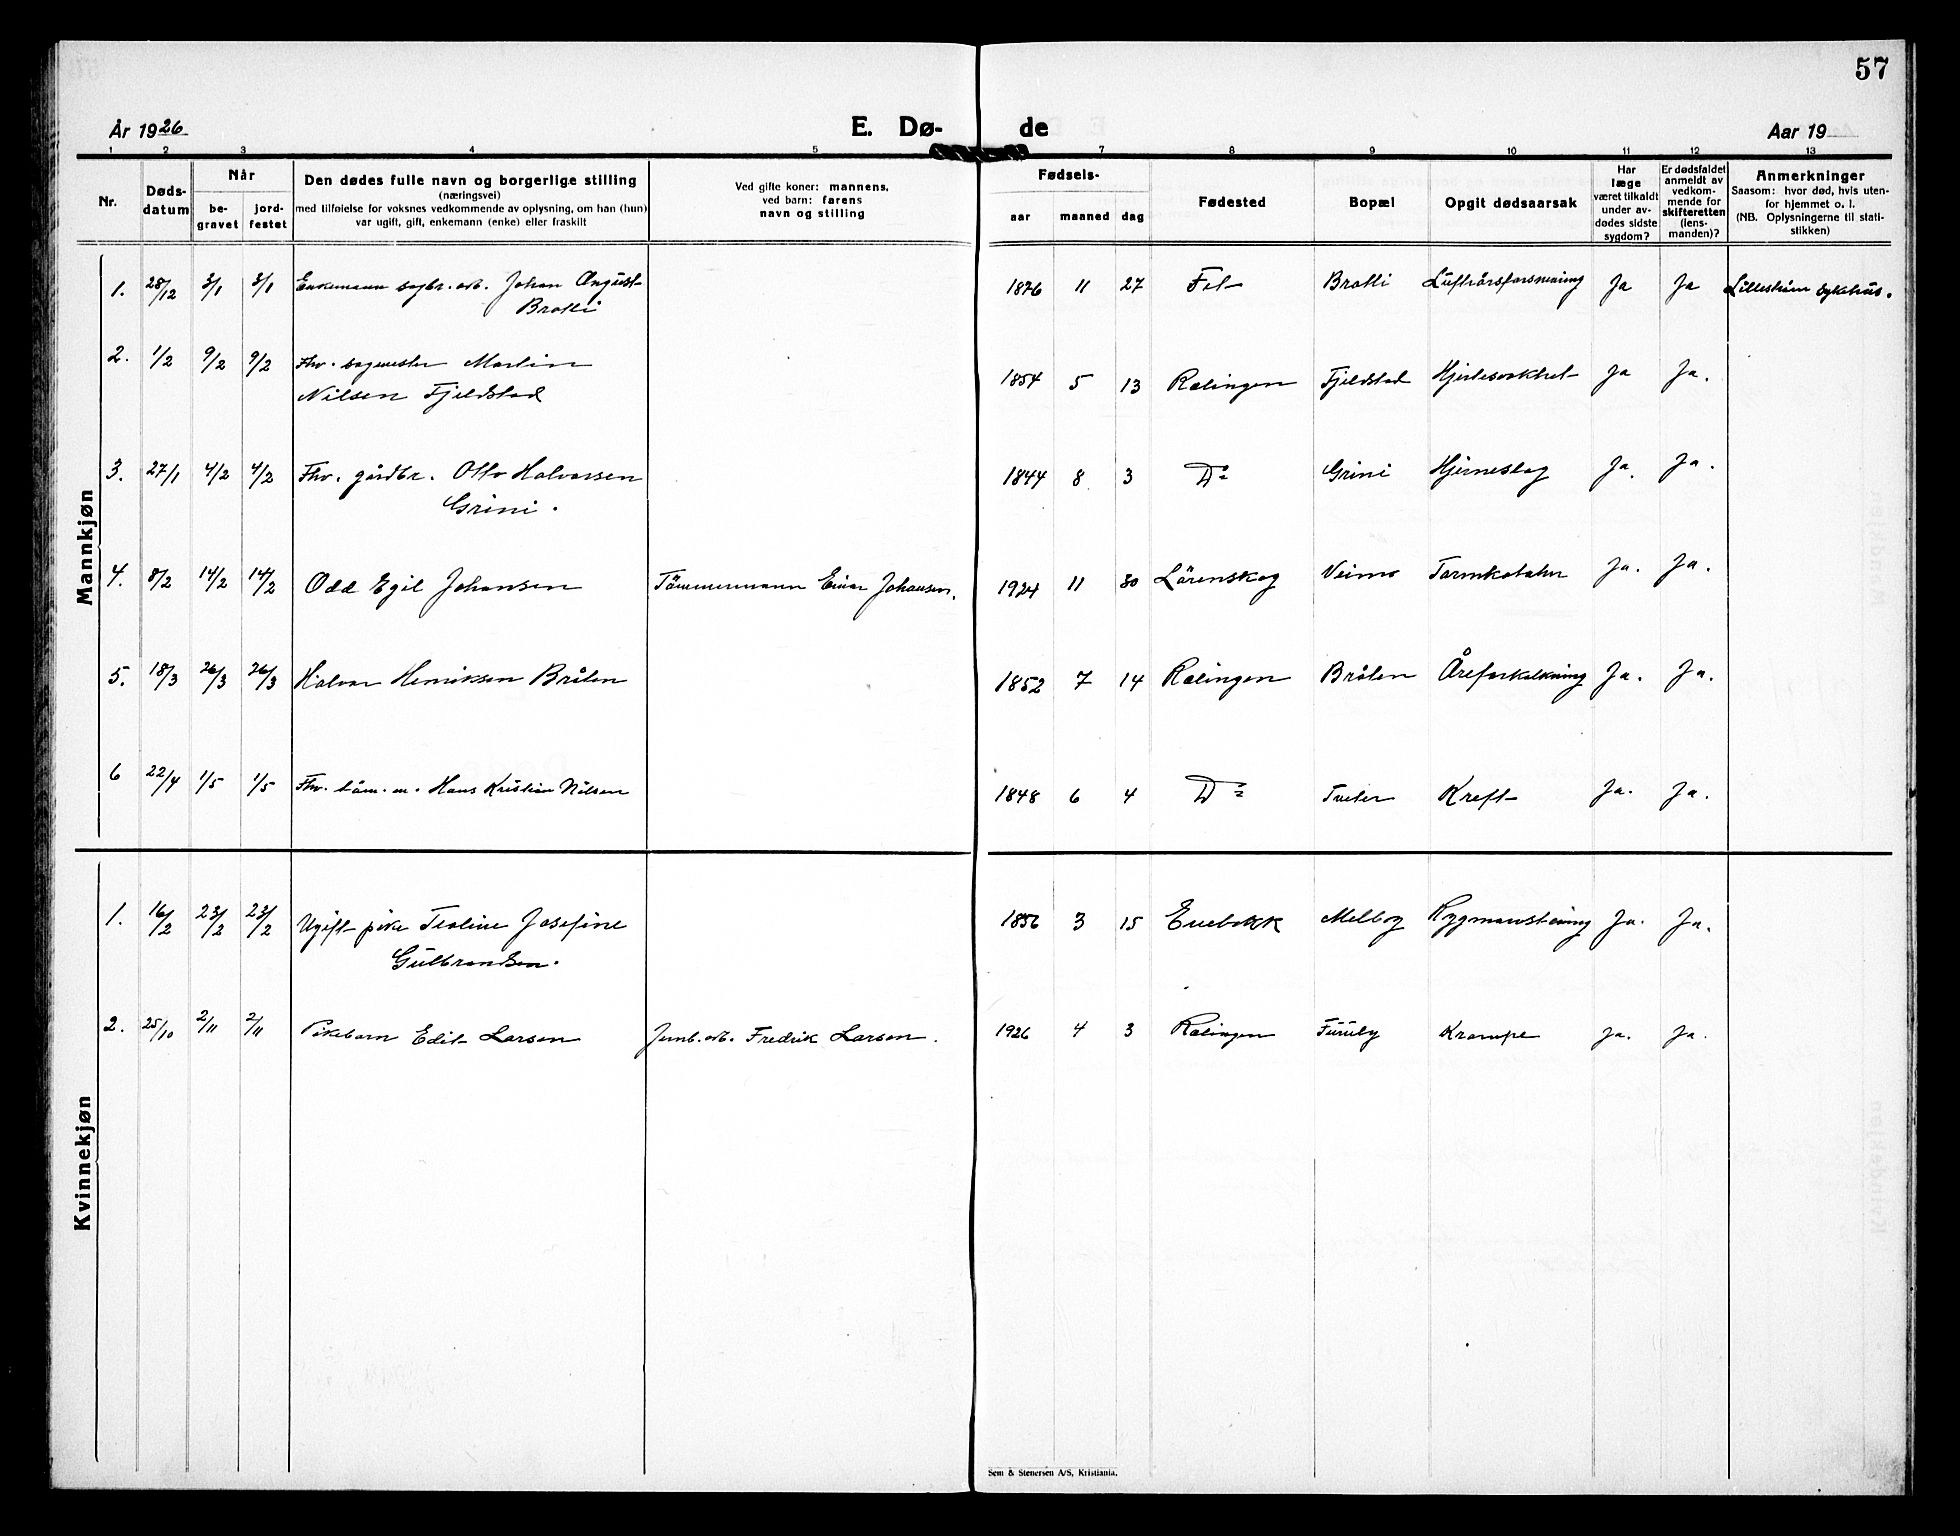 57
År 1926
E. Dø-
de
Aar 19
1 2 3 4 5 7 8 9 10 11 12 13
Nr.
Døds-
datum
Når
be-
gravet
jord-
festet
Den dødes fulle navn og borgerlige stilling
(næringsvei)
med tilføielse for voksnes vedkommende av oplysning, om han (hun)
var ugift, gift, enkemann (enke) eller fraskilt
Ved gifte koner: mannens,
ved barn: farens
navn og stilling
Fødsels-
aar maaned dag
Fødested
Bopæl
Opgit dødsaarsak
Har
læge
været tilkaldt
under av-
dødes sidste
sygdom?
Er dødsfaldet
anmeldt av
vedkom-
mende for
skifteretten
(lens-
manden)?
Anmerkninger
Saasom: hvor død, hvis uten-
for hjemmet o. l.
(NB. Oplysningerne til stati-
stikken)
Mannkjøn
1. 28/12 3/1 3/1 Enkemann sagbr. arb. Johan August 1876 11 27 Fet Bratli Ja Ja Lillestrøm sykehus.
Bratli
2. 1/2 9/2 9/2 Fhv. sagmester Martin
Nilsen Fjeldstad 1854 5 13 Rælingen Fjeldstad Hjertesvakhet Ja Ja.
3. 27/1 4/2 4/2 Fhv. gårdbr. Otto Halvorsen 1844 8 3 Do Grini Hjerneslag Ja. Ja.
Grini.
4. 8/2 14/2 14/2 Odd Egil Johansen Tømmermann Einar Johansen. 1924 11 30 Lørenskog Veimo Tarmkatahr Ja. Ja.
5. 18/3 26/3 26/3 Halvor Henriksen Bråten 1852 7 14 Rælingen Bråten Åreforkalkning Ja. Ja.
6 22/4 1/5 1/5 Fhv. tøm. m. Hans Kristian Nilsen 1848 6 4 Do Tveter Kreft Ja. Ja.
Kvinnekjøn
1. 16/2 23/2 23/2 Ugift pike Teoline Josefine 1856 3 15 Enebakk Melby Ja. Ja.
Gulbrandsen.
2. 25/10 2/11 2/11 Pikebarn Edit Larsen Jernb. arb. Fredrik Larsen. 1926 4 3 Rælingen Furuby Krampe Ja. Ja.
Sem & Stenersen A/S, Kristiania.